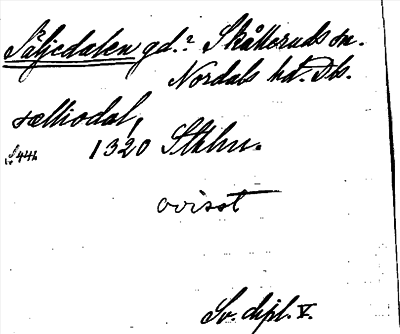 Säljedalen gd.? Skålleruds sn.
Nordals hd. Dls.
sælliodal,
1320 Sthlm.
ovisst
Sv. dipl. V.